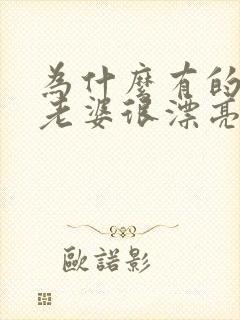 為什麼有的
老婆很漂亮
歐諾影